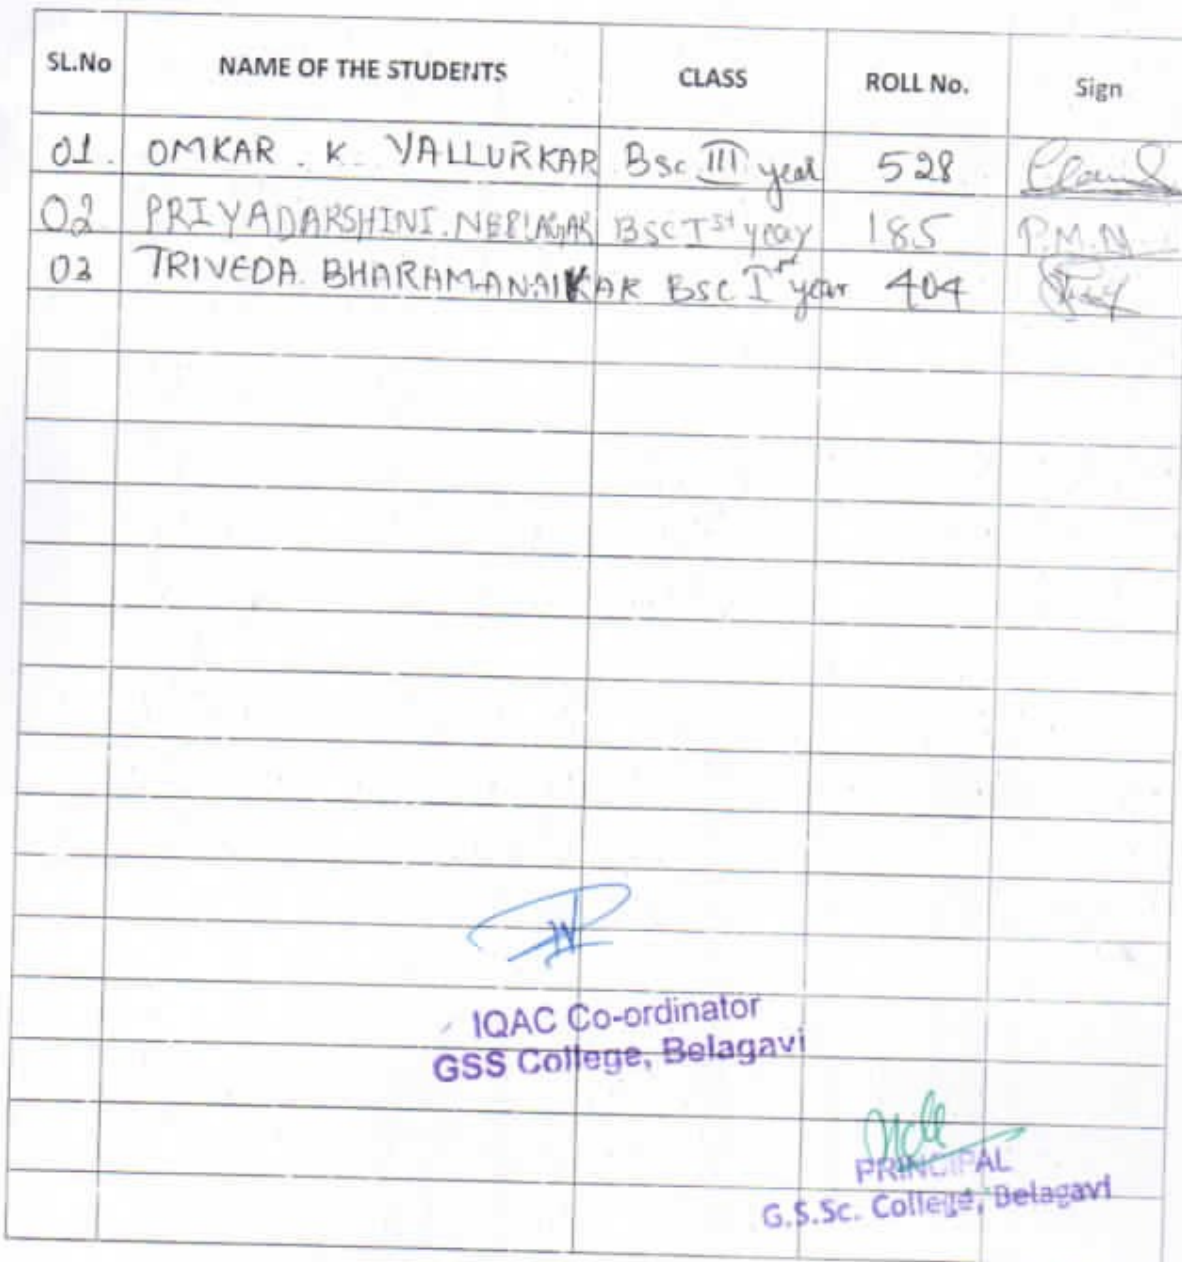 SL.No NAME OF THE STUDENTS CLASS ROLL No. Sign
01. OMKAR . K. VALLURKAR Bsc III year 528
02 PRIYADARSHINI. BSC Ist year 185 P.M.N
03 TRIVEDA. BHARAMANAIKAR BSC Ist year 404
IQAC Co-ordinator
GSS College, Belagavi
PRINCIPAL
G.S.Sc. College, Belagavi